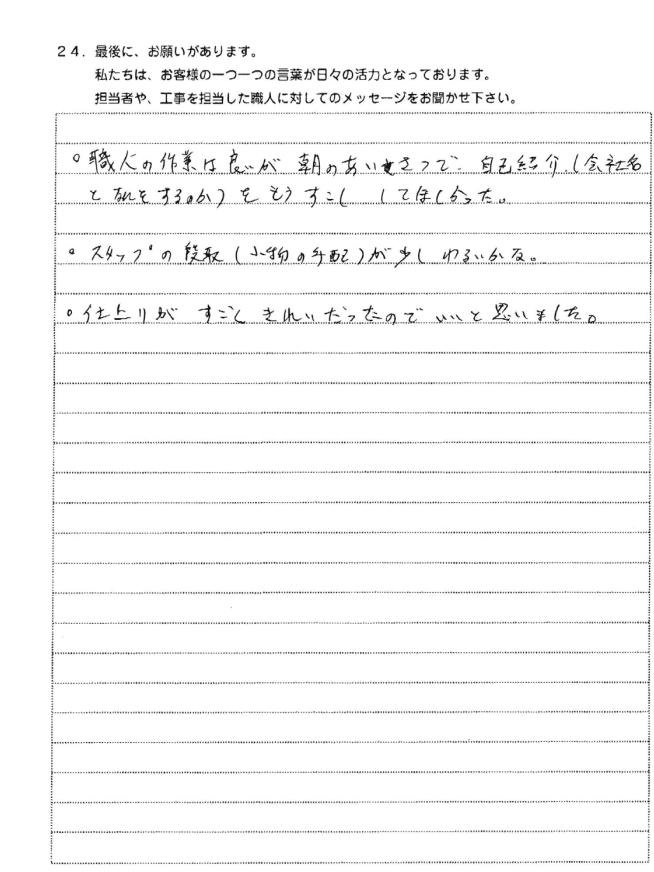 24．最後に、お願いがあります。
私たちは、お客様の一つ一つの言葉が日々の活力となっております。
担当者や、工事を担当した職人に対してのメッセージをお聞かせ下さい。
○職人の作業は良いが 朝のあいさつで、自己紹介、(会社名
と なにをするのか) を もうすこし してほしかった。
○ スタッフの段取(小物の手配)が少し わるいかな。
○仕上りが すごく きれいだったので いいと 思いました。